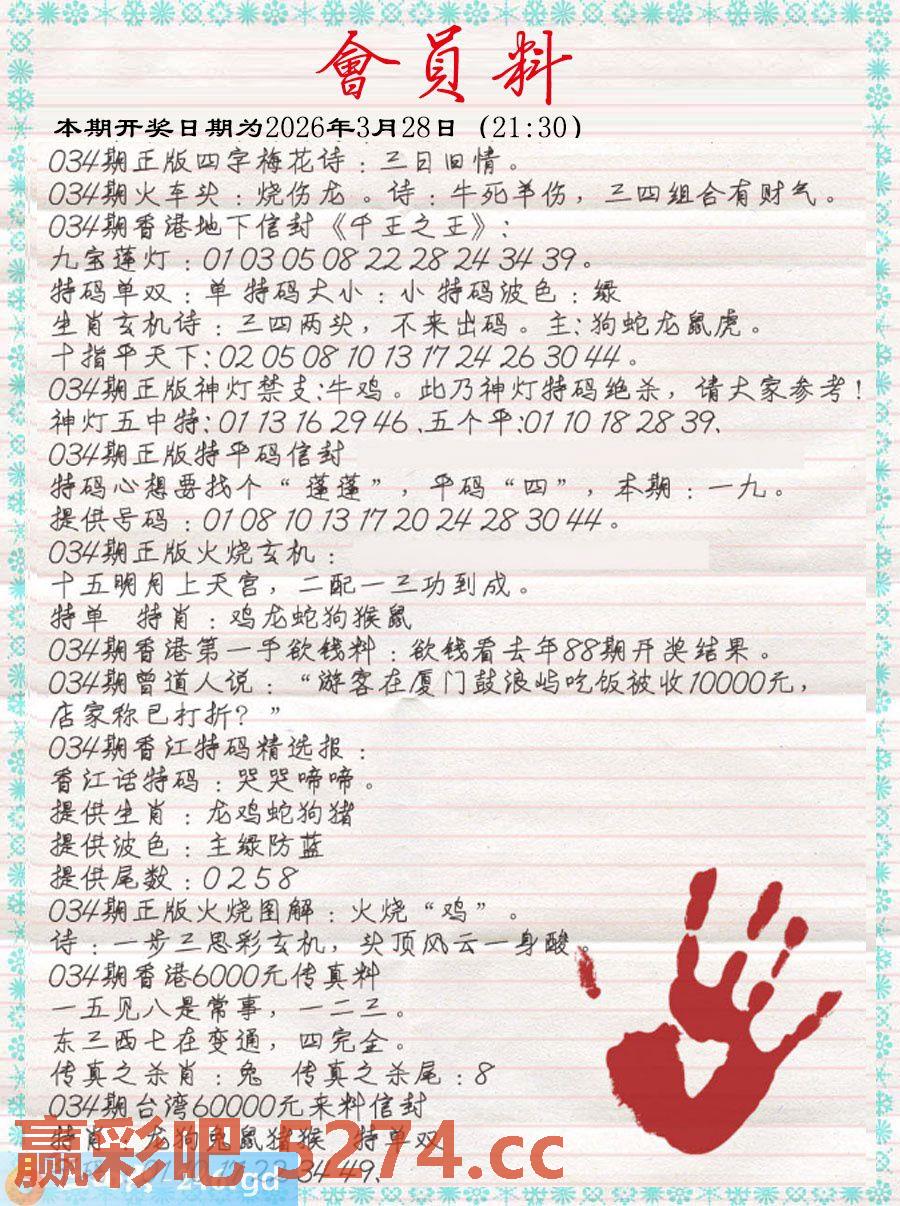 會員料
本期开奖日期为2026年3月28日（21:30）
034期正版四字梅花诗：三日旧情。
034期火车头：烧伤龙 。诗：牛死羊伤，三四组合有财气。
034期香港地下信封《千王之王》：
九宝莲灯：01 03 05 08 22 28 24 34 39。
特码单双：单 特码大小：小 特码波色：绿
生肖玄机诗：三四两头，不来出码。主:狗蛇龙鼠虎。
十指平天下:02 05 08 10 13 17 24 26 30 44。
034期正版神灯禁支:牛鸡。此乃神灯特码绝杀，请大家参考！
神灯五中特: 01 13 16 29 46 、五个平:01 10 18 28 39、
034期正版特平码信封
特码心想要找个“ 蓬蓬”，平码“四”，本期：一九。
提供号码：01 08 10 13 17 20 24 28 30 44。
034期正版火烧玄机：
十五明月上天宫，二配一三功到成。
特单 特肖：鸡龙蛇狗猴鼠
034期香港第一手欲钱料：欲钱看去年88期开奖结果。
034期曾道人说：“游客在厦门鼓浪屿吃饭被收10000元，
店家称已打折？”
034期香江特码精选报：
香江话特码：哭哭啼啼。
提供生肖：龙鸡蛇狗猪
提供波色：主绿防蓝
提供尾数：0 2 5 8
034期正版火烧图解：火烧“鸡”。
诗：一步三思彩玄机，头顶风云一身酸。
034期香港6000元传真料
一五见八是常事，一二三。
东三西七在变通，四完全。
传真之杀肖：兔 传真之杀尾：8
034期台湾60000元来料信封
特肖：龙狗兔鼠猪猴 特单双
赢彩吧 5274.cc
34 49、